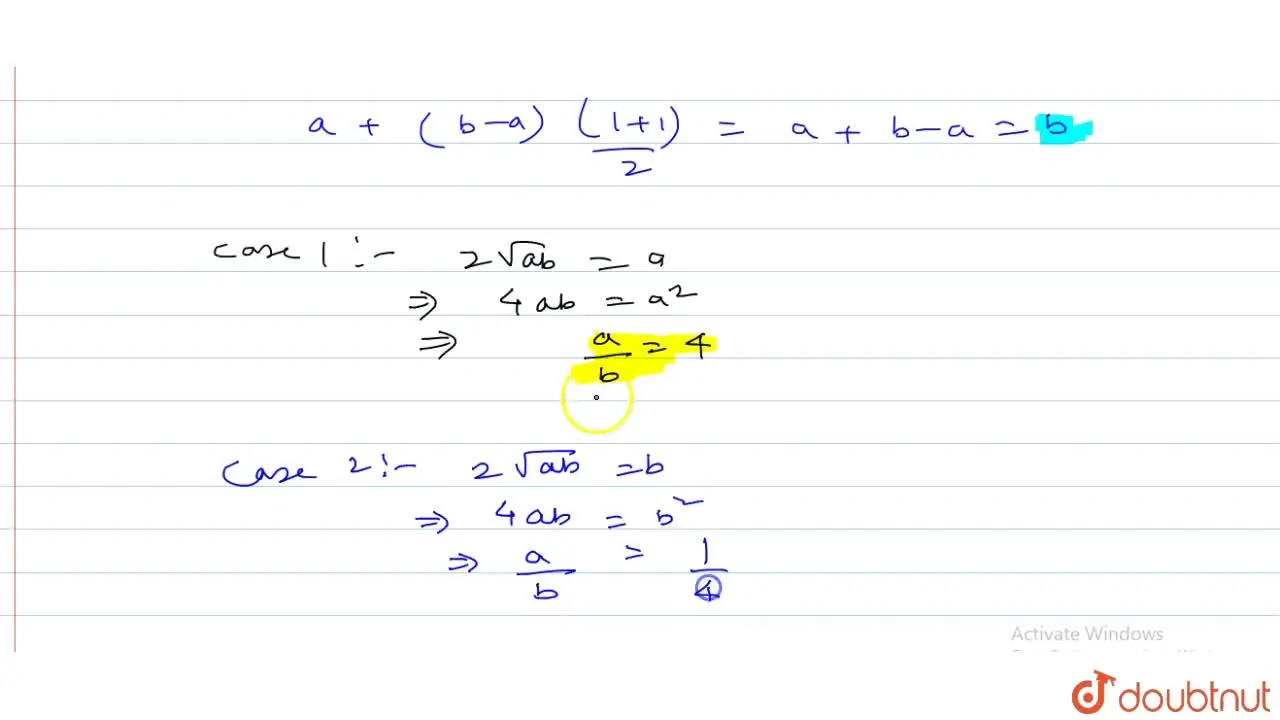 a + (b-a) (1+1)/2 = a + b-a = b
case 1 :- 2√ab = a
⇒ 4ab = a²
⇒ a/b = 4
Case 2 :- 2√ab = b
⇒ 4ab = b²
⇒ a/b = 1/4
Activate Windows
doubtnut